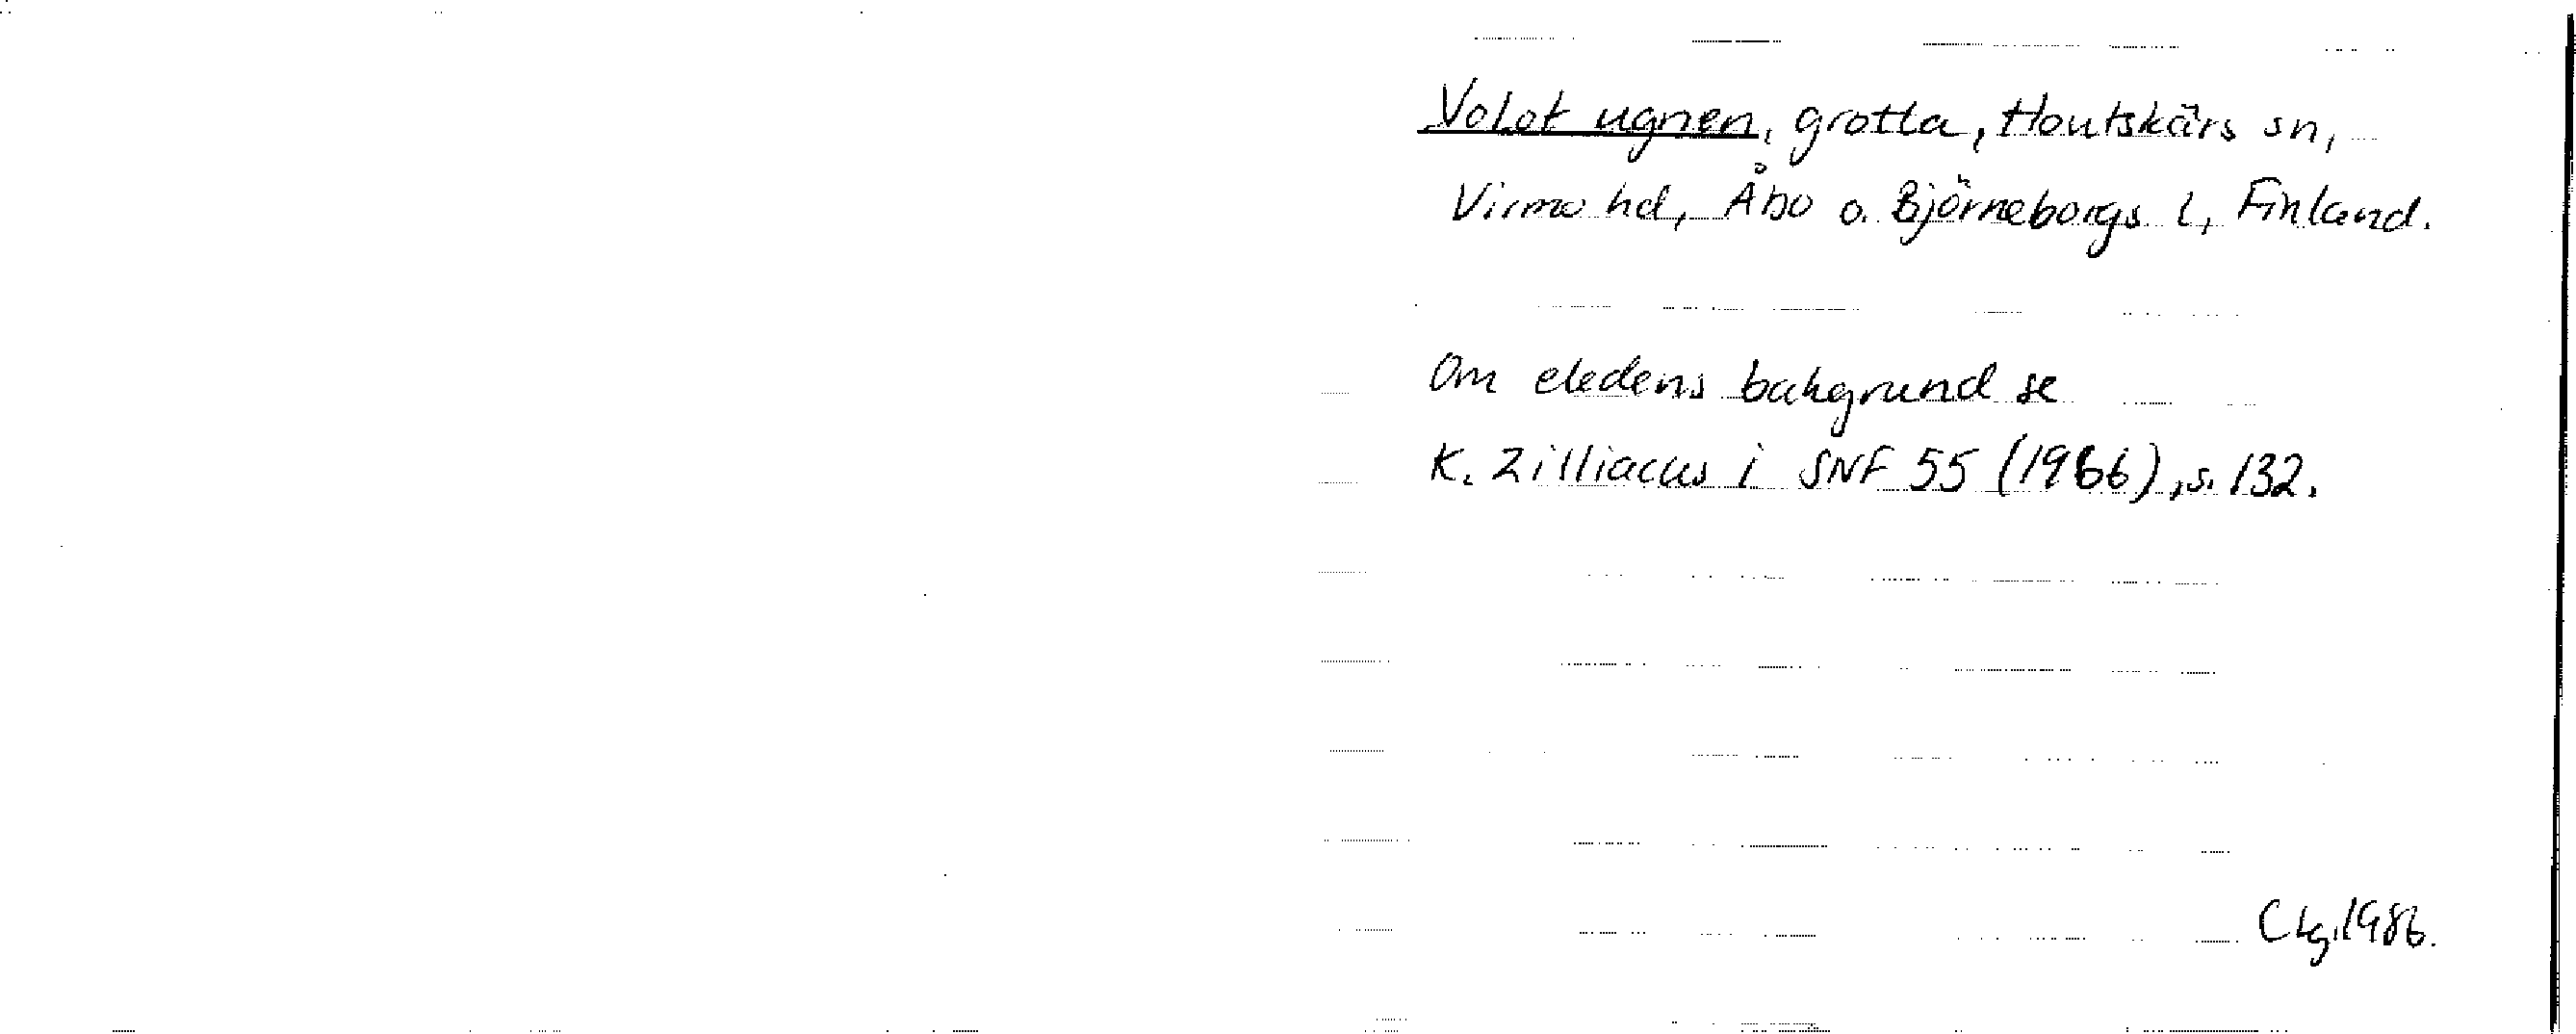 Volot ugnen, grotta, Houtskärs sn,
Virmo hd, Åbo o. Björneborgs l, Finland.
Om eledens bakgrund se
K. Zilliacus i SNF 55 (1966), s. 132.
1986.